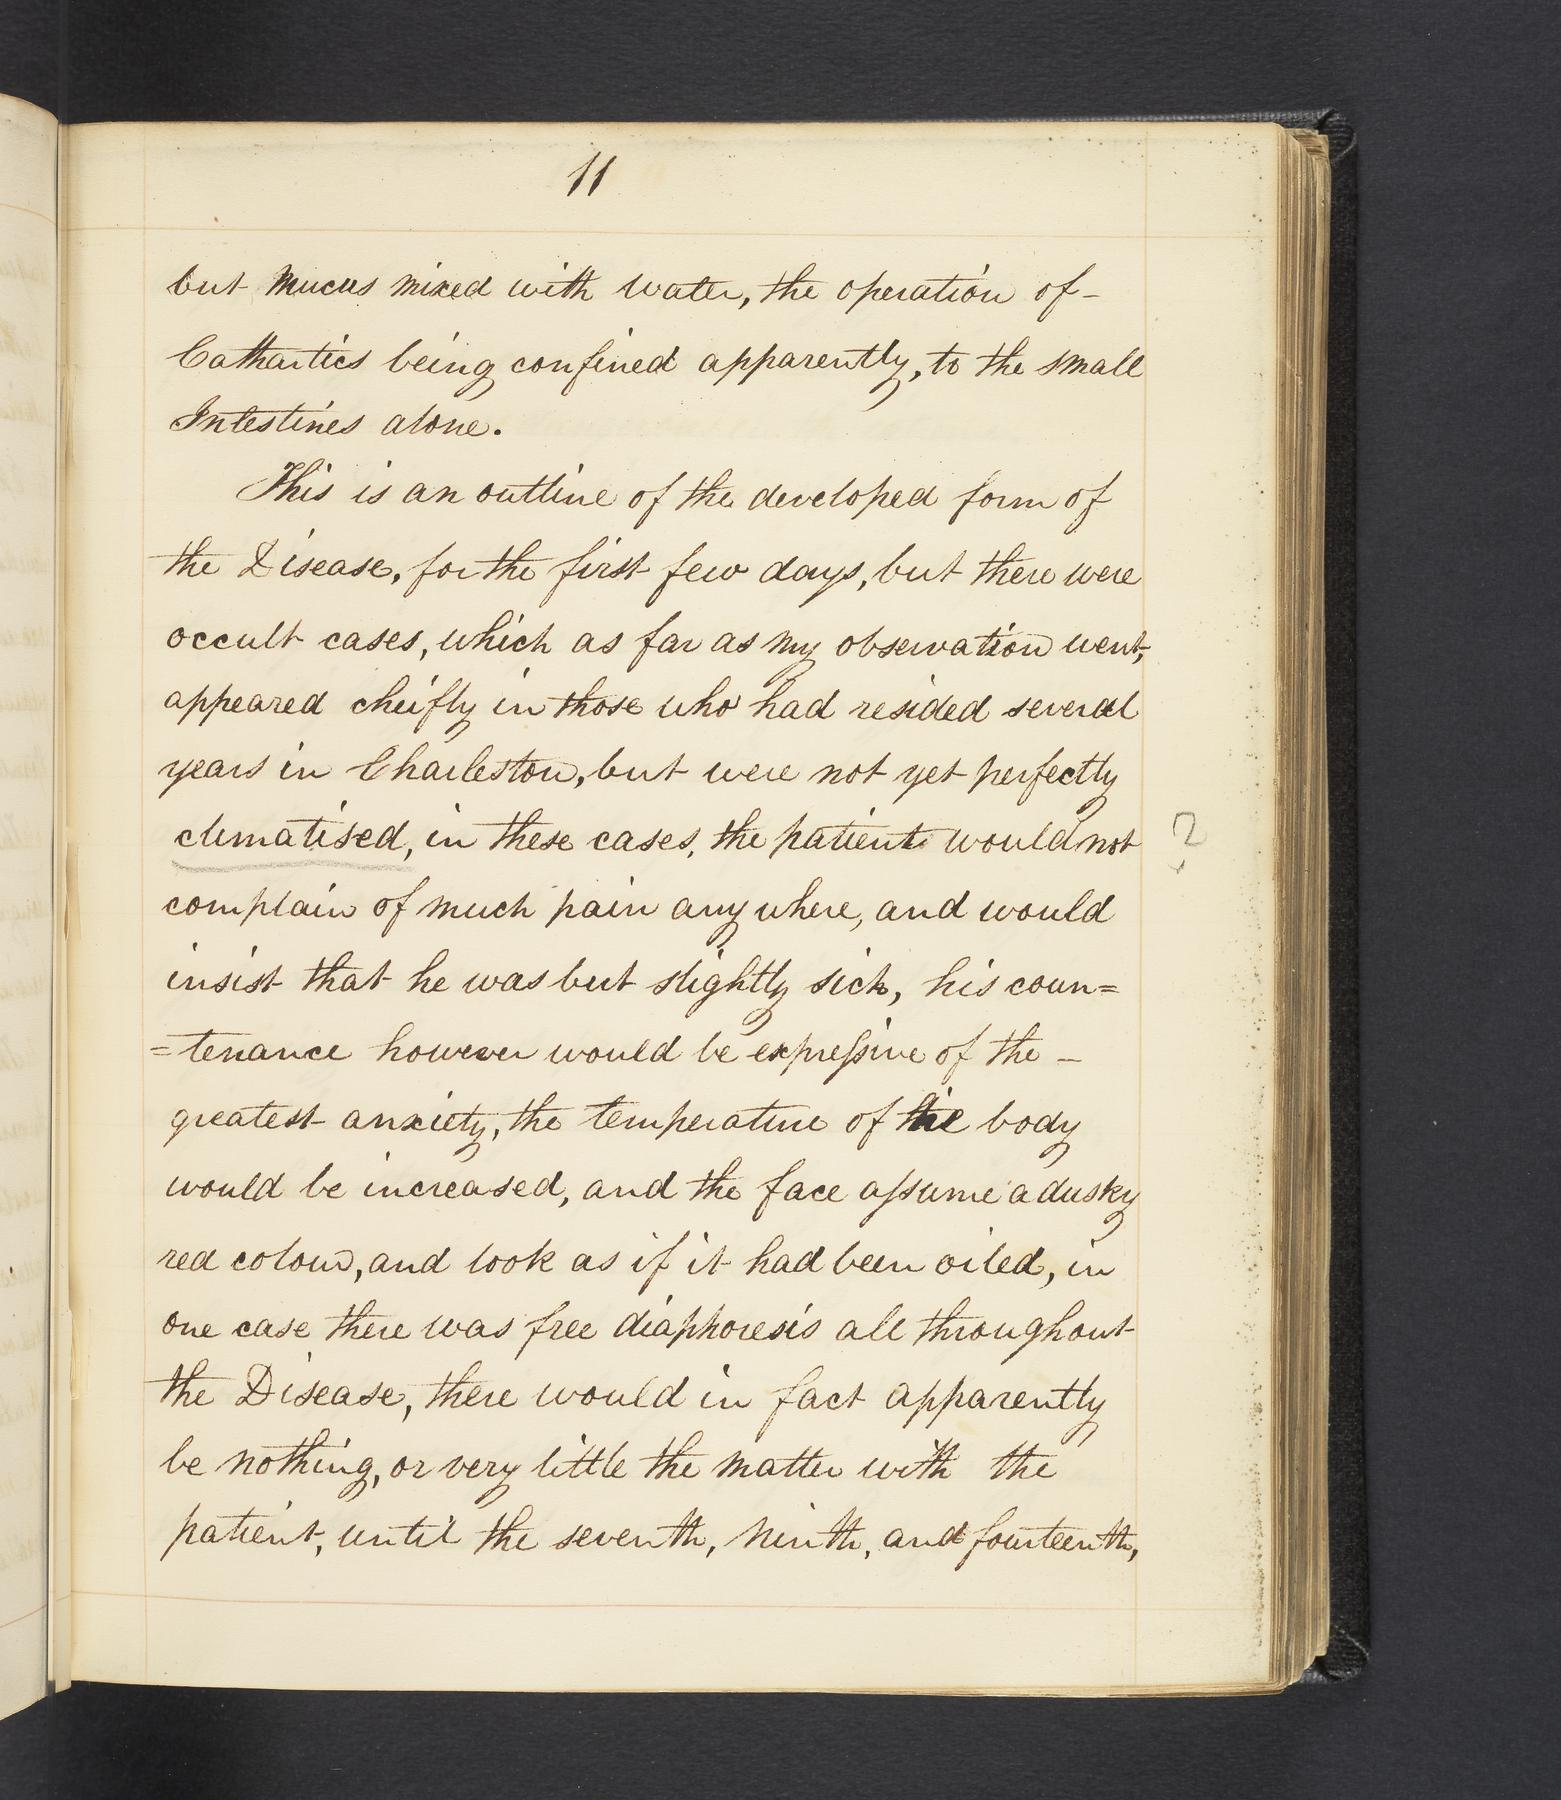 11
but mucus mixed with water, the operation of -
Cathartics being confined apparently, to the small
Intestines alone.
This is an outline of the developed form of
the Disease, for the first few days, but there were
occult cases, which as far as my observation went,
appeared cheifly in those who had resided several
years in Charleston, but were not yet perfectly
climatised, in these cases, the patient would not
?
complain of much pain any where, and would
insist that he was but slightly sick, his coun=
=tenance however would be expreſsive of the -
greatest anxiety, the temperature of the body
would be increased, and the face aſsume a dusky
red colour, and look as if it had been oiled, in
one case there was free diaphoresis all throughout
the Disease, there would in fact apparently
be nothing, or very little the matter with the
patient, until the seventh, ninth, and fourteenth,